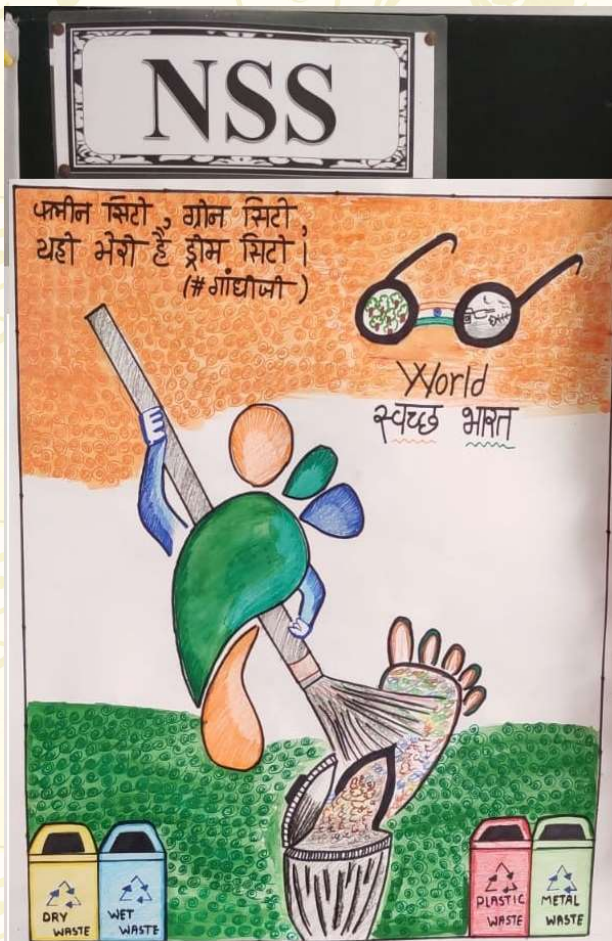 NSS
क्लीन सिटी, ग्रीन सिटी,
यही मेरी है ड्रीम सिटी।
(#गांधीजी)
World
स्वच्छ भारत
DRY
WASTE
WET
WASTE
PLASTIC
WASTE
METAL
WASTE